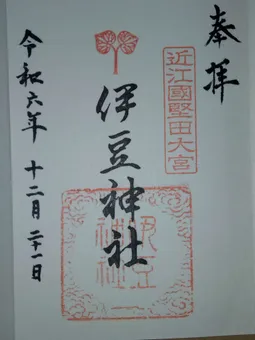 奉拝
近江國堅田大宮
伊豆神社
伊豆神社
令和六年 十二月 二十一日